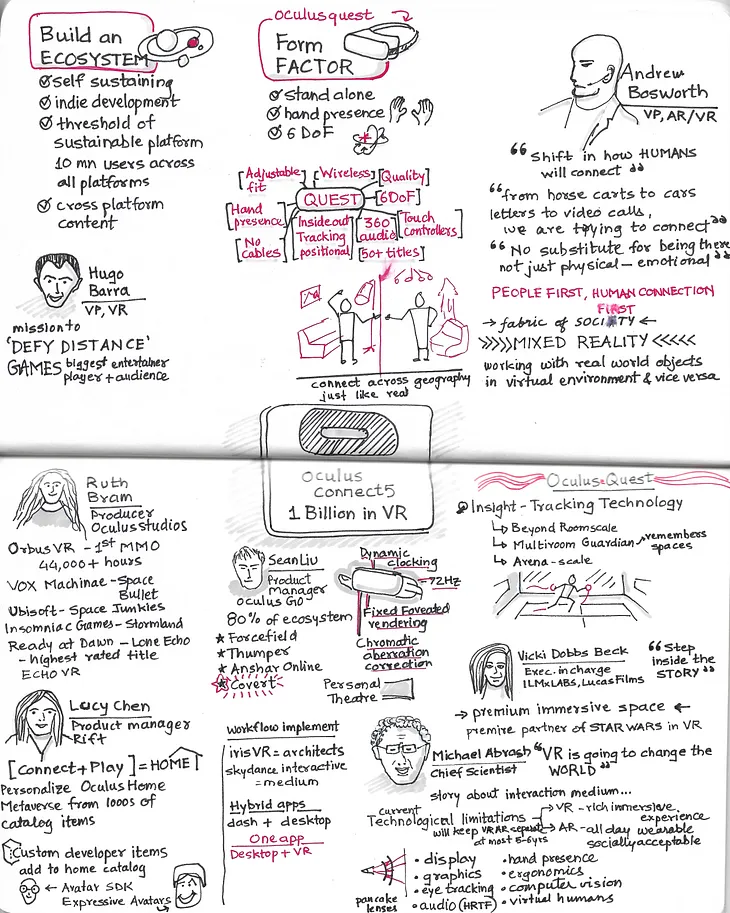 Build an
ECOSYSTEM
self sustaining
indie development
threshold of
sustainable platform
10 mn users across
all platforms
cross platform
content
Hugo
Barra
VP, VR
mission to
'DEFY DISTANCE'
GAMES biggest entertainer
player + audience
oculus quest
Form
FACTOR
stand alone
hand presence
6 DoF
[Adjustable
fit
[Wireless]
[Quality]
[Hand
presence]
QUEST
[6DoF]
[No
cables]
[Inside out
Tracking
positional]
[360°
audio]
[Touch
controllers]
[50+ titles]
connect across geography
just like real
Andrew
Bosworth
VP, AR/VR
“ Shift in how HUMANS
will connect ”
“from horse carts to cars
letters to video calls,
we are trying to connect”
“ No substitute for being there
not just physical – emotional ”
PEOPLE FIRST, HUMAN CONNECTION
FIRST
→ fabric of SOCIETY ←
>>>>>MIXED REALITY <<<<<
working with real world objects
in virtual environment & vice versa
Oculus
connect5
1 Billion in VR
Ruth
Bram
Producer
Oculus studios
Orbus VR – 1st MMO
44,000+ hours
VOX Machinae – Space
Bullet
Ubisoft – Space Junkies
Insomniac Games – Stormland
Ready at Dawn – Lone Echo
– highest rated title
ECHO VR
Lucy Chen
Product manager
Rift
[Connect + Play] = HOME
Personalize Oculus Home
Metaverse from 1000s of
catalog items
Custom developer items
add to home catalog
← Avatar SDK
Expressive Avatars
Sean Liu
Product
Manager
Oculus GO
80% of ecosystem
★ Forcefield
★ Thumper
★ Anshar Online
★ Covert
Dynamic
clocking
72Hz
Fixed Foveated
rendering
Chromatic
aberration
correction
Personal
Theatre
workflow implement
iris VR = architects
skydance interactive
= medium
Hybrid apps
dash + desktop
One app
Desktop + VR
Oculus Quest
Insight – Tracking Technology
↳ Beyond Roomscale
↳ Multiroom Guardian → remembers
spaces
↳ Arena-scale
Vicki Dobbs Beck
Exec. in charge
ILMxLABS, Lucas Films
“ Step
inside the
STORY ”
→ premium immersive space ←
premire partner of STAR WARS in VR
Michael Abrash
Chief Scientist
“VR is going to change the
WORLD ”
story about interaction medium...
current
Technological limitations
will keep VR AR separate
at most 5-6yrs
→ VR – rich immersive
experience
→ AR – all day wearable
socially acceptable
pancake
lenses
• display
• graphics
• eye tracking
• audio (HRTF)
• hand presence
• ergonomics
• computer vision
• virtual humans